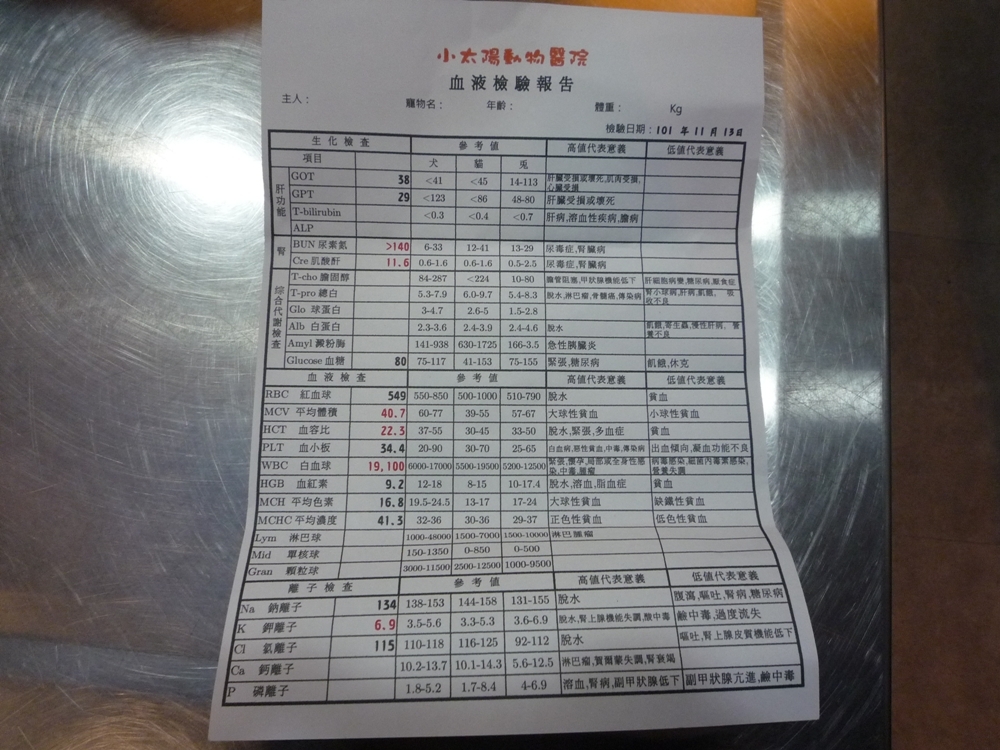 小太陽動物醫院
血液檢驗報告
主人： 寵物名： 年齡： 體重： Kg
檢驗日期：101 年 11 月 13日
生化檢查 參考值 高值代表意義 低值代表意義
項目 犬 貓 兎
肝功能
GOT 38 <41 <45 14-113 肝臟受損或壞死,肌肉受損,心臟受損
GPT 29 <123 <86 48-80 肝臟受損或壞死
T-bilirubin <0.3 <0.4 <0.7 肝病,溶血性疾病,膽病
ALP
腎
BUN 尿素氮 >140 6-33 12-41 13-29 尿毒症,腎臟病
Cre 肌酸酐 11.6 0.6-1.6 0.6-1.6 0.5-2.5 尿毒症,腎臟病
綜合代謝檢查
T-cho 膽固醇 84-287 <224 10-80 膽管阻塞,甲狀腺機能低下 肝細胞病變,糖尿病,厭食症
T-pro 總白 5.3-7.9 6.0-9.7 5.4-8.3 脫水,淋巴瘤,骨髓癌,傳染病 腎小球病,肝病,飢餓、吸收不良
Glo 球蛋白 3-4.7 2.6-5 1.5-2.8
Alb 白蛋白 2.3-3.6 2.4-3.9 2.4-4.6 脫水 飢餓,寄生蟲,慢性肝病、營養不良
Amyl 澱粉酶 141-938 630-1725 166-3.5 急性胰臟炎
Glucose 血糖 80 75-117 41-153 75-155 緊張,糖尿病 飢餓,休克
血液檢查 參考值 高值代表意義 低值代表意義
RBC 紅血球 549 550-850 500-1000 510-790 脫水 貧血
MCV 平均體積 40.7 60-77 39-55 57-67 大球性貧血 小球性貧血
HCT 血容比 22.3 37-55 30-45 33-50 脫水,緊張,多血症 貧血
PLT 血小板 34.4 20-90 30-70 25-65 白血病,惡性貧血,中毒,傳染病 出血傾向,凝血功能不良
WBC 白血球 19,100 6000-17000 5500-19500 5200-12500 緊張,懷孕,局部或全身性感染,中毒,腫瘤 病毒感染,細菌內毒素感染,營養失調
HGB 血紅素 9.2 12-18 8-15 10-17.4 脫水,溶血,脂血症 貧血
MCH 平均色素 16.8 19.5-24.5 13-17 17-24 大球性貧血 缺鐵性貧血
MCHC 平均濃度 41.3 32-36 30-36 29-37 正色性貧血 低色性貧血
Lym 淋巴球 1000-48000 1500-7000 1500-10000 淋巴腫瘤
Mid 單核球 150-1350 0-850 0-500
Gran 顆粒球 3000-11500 2500-12500 1000-9500
離子檢查 參考值 高值代表意義 低值代表意義
Na 鈉離子 134 138-153 144-158 131-155 脫水 腹瀉,嘔吐,腎病,糖尿病
K 鉀離子 6.9 3.5-5.6 3.3-5.3 3.6-6.9 脫水,腎上腺機能失調,酸中毒 鹼中毒,過度流失
Cl 氯離子 115 110-118 116-125 92-112 脫水 嘔吐,腎上腺皮質機能低下
Ca 鈣離子 10.2-13.7 10.1-14.3 5.6-12.5 淋巴瘤,賀爾蒙失調,腎衰竭
P 磷離子 1.8-5.2 1.7-8.4 4-6.9 溶血,腎病,副甲狀腺低下 副甲狀腺亢進,鹼中毒